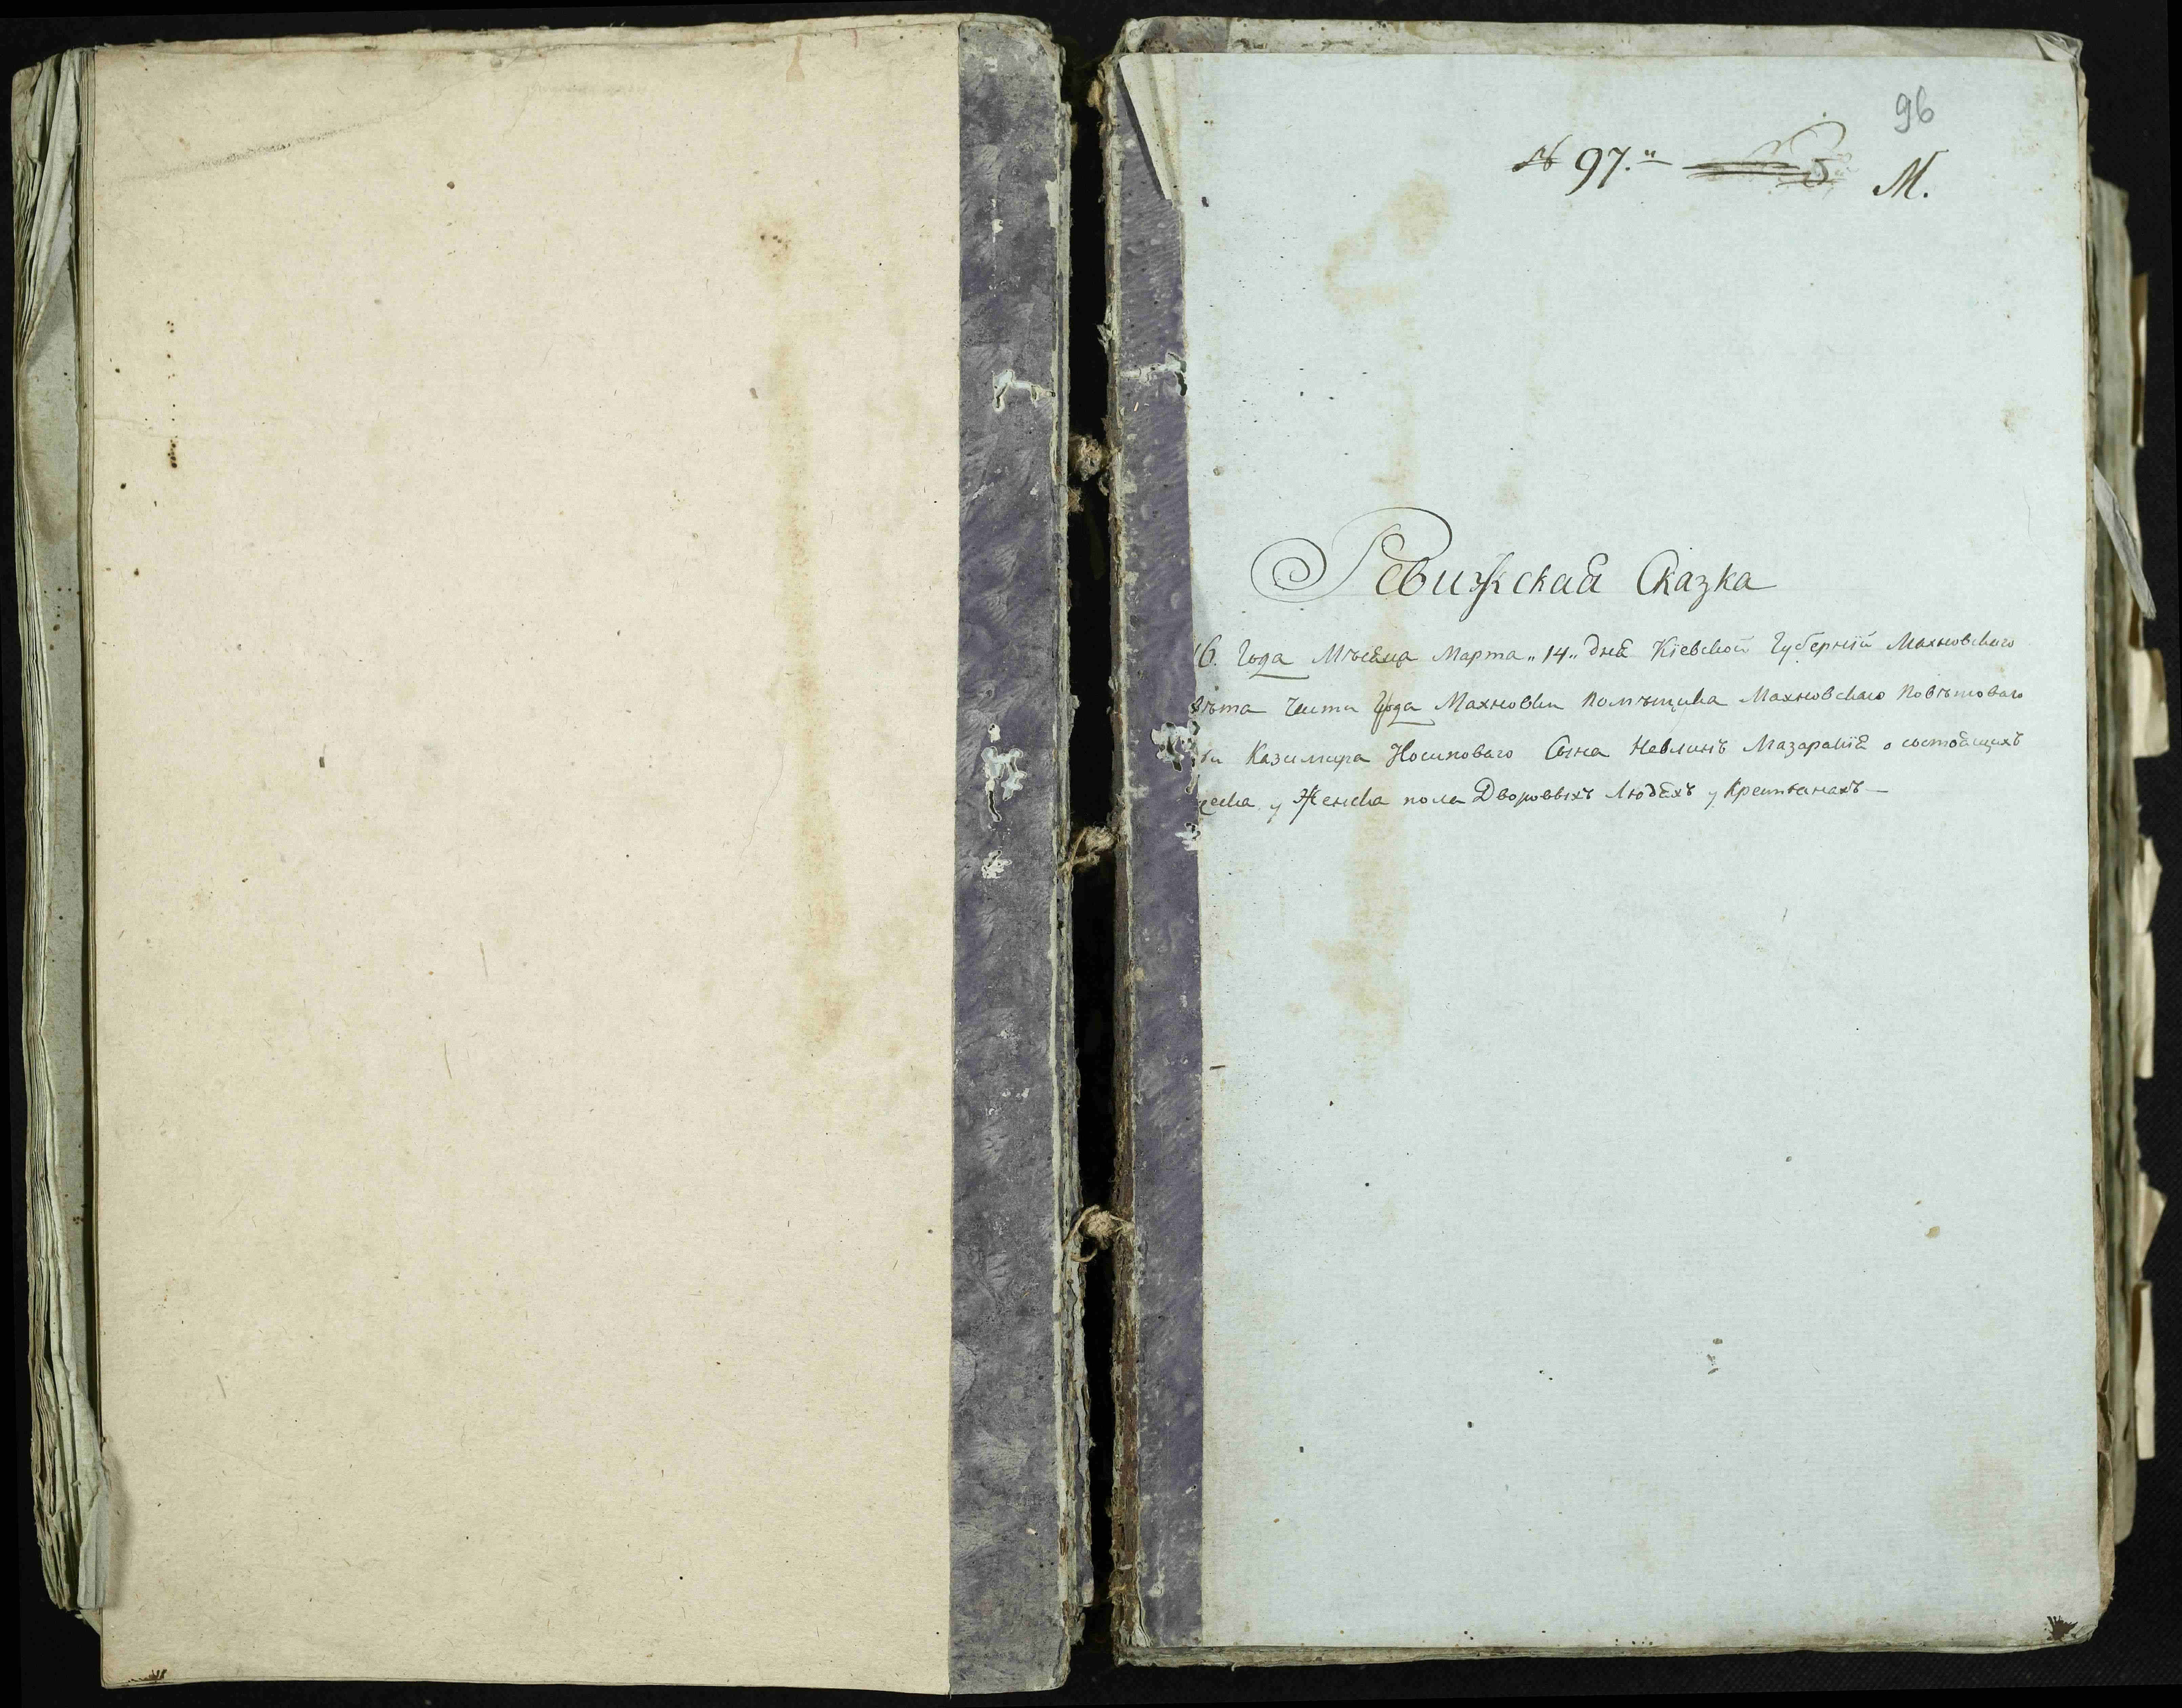 96
№ 97. М.
Ревижская Сказка
16. Года Мъсяца Марта „14„ дня Кіевской Губерніи Махновского
Части Махновки помъщика Махновскаго повътоваго
Казимира Иосиповаго Сына Мазаракія о состоящихъ
Женска пола Дворовыхъ Людяхъ у Крештянахъ—